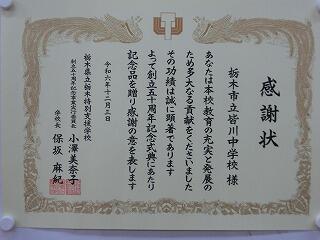 感謝状
栃木市立皆川中学校 様
あなたは本校教育の充実と発展の
ため多大なる貢献をくださいました
その功績は誠に顕著であります
よって創立五十周年記念式典にあたり
記念品を贈り感謝の意を表します
令和六年十二月三日
栃木県立栃木特別支援学校
創立五十周年記念事業実行委員長 小澤 美奈子
学校長 保坂 麻紀